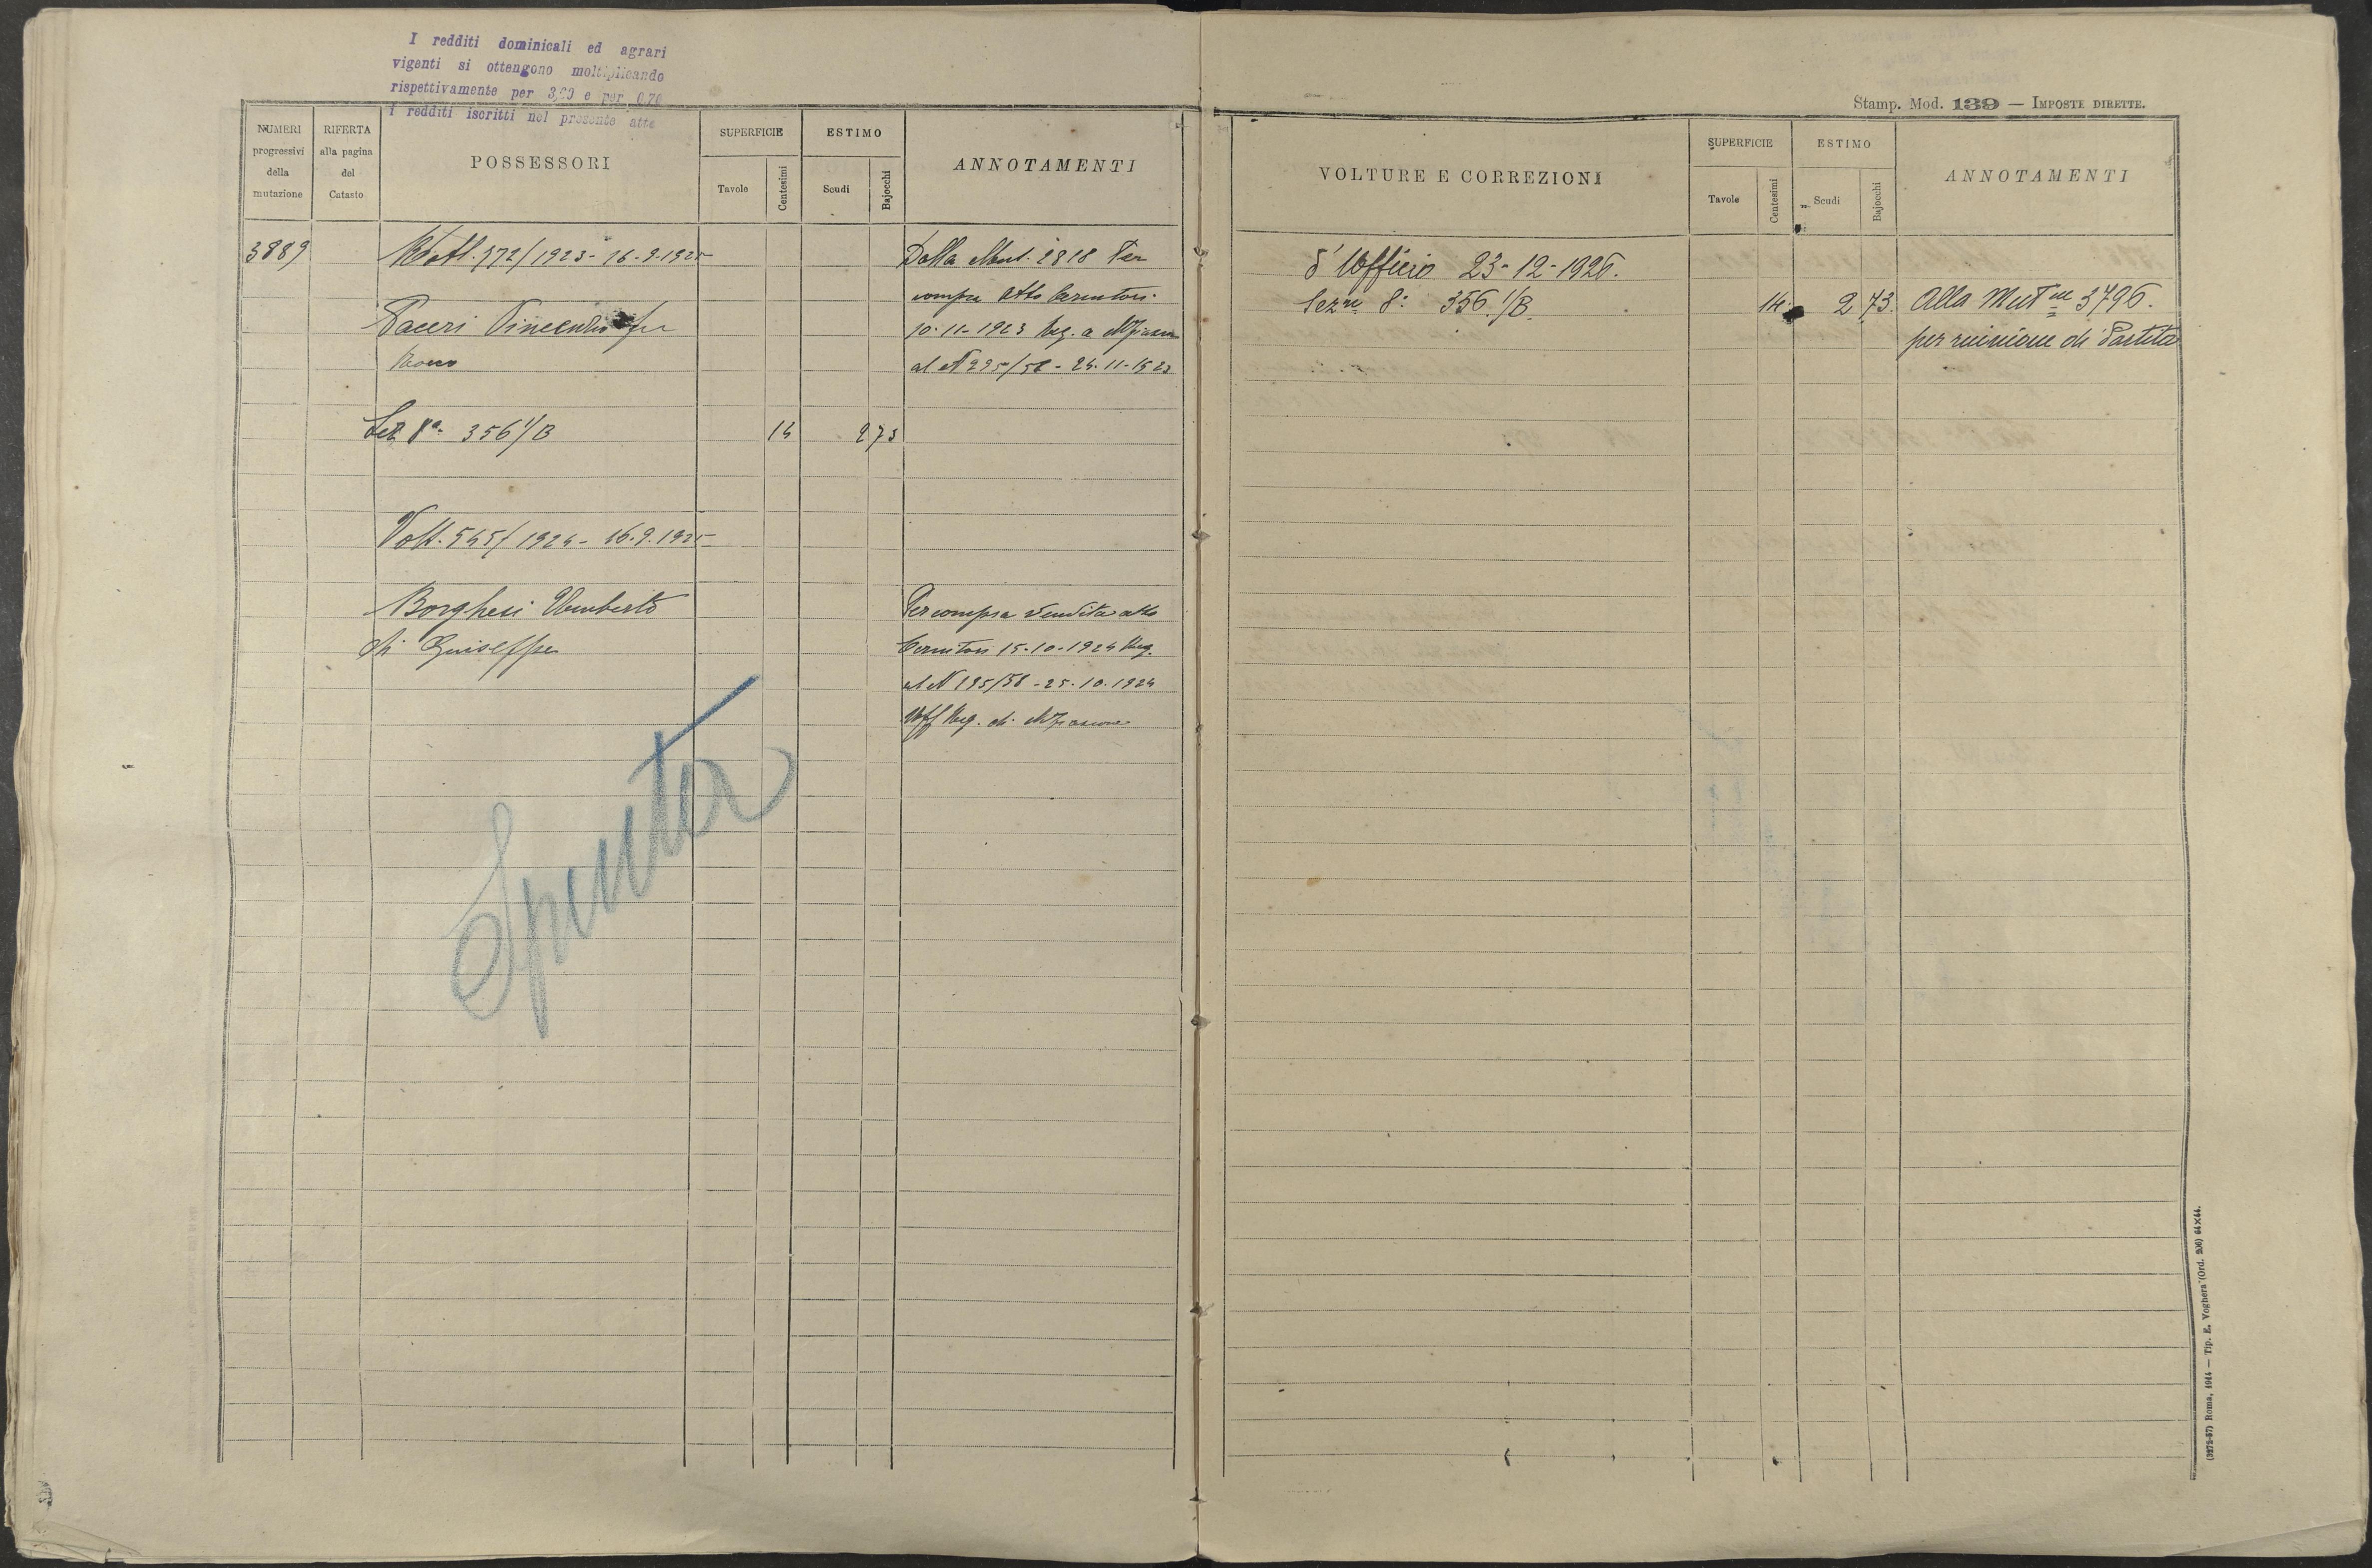 I redditi dominicali ed agrari
vigenti si ottengono moltiplicando
rispettivamente per 3,20 e per 0,70
i redditi iscritti nel presente atto
NUMERI
progressivi
della
mutazione
RIFERTA
alla pagina
del
Catasto
POSSESSORI
SUPERFICIE
Tavole
Centesimi
ESTIMO
Scudi
Bajocchi
ANNOTAMENTI
3889
Volt. 372/1923 - 16.9.1925
Paceri Vincenzo fu
Rocco
Sez 8a 356 1/B
14
2 73
Dalla Mut. 2818 Per
compra atto Cernitori
10-11-1923 Reg. a
al N 295/58 - 24-11-1923
Volt. 545/1924 - 16.9.1925
Borghesi Umberto
di Guiseppe
Per compra vendita atto
Cernitori 15-10-1924 Reg.
al N 195/58 - 25.10.1924
Uff Reg. di
Spenta
Stamp. Mod. 139 — IMPOSTE DIRETTE.
VOLTURE E CORREZIONI
SUPERFICIE
Tavole
Centesimi
ESTIMO
Scudi
Bajocchi
ANNOTAMENTI
d'Ufficio 23-12-1926.
Sezne 8a 356 1/B.
14
2 73.
Alla Mutne 3796.
per riunione di Partita
(3272-57) Roma, 1914 — Tip. E. Voghera (Ord. 206) 64×44.